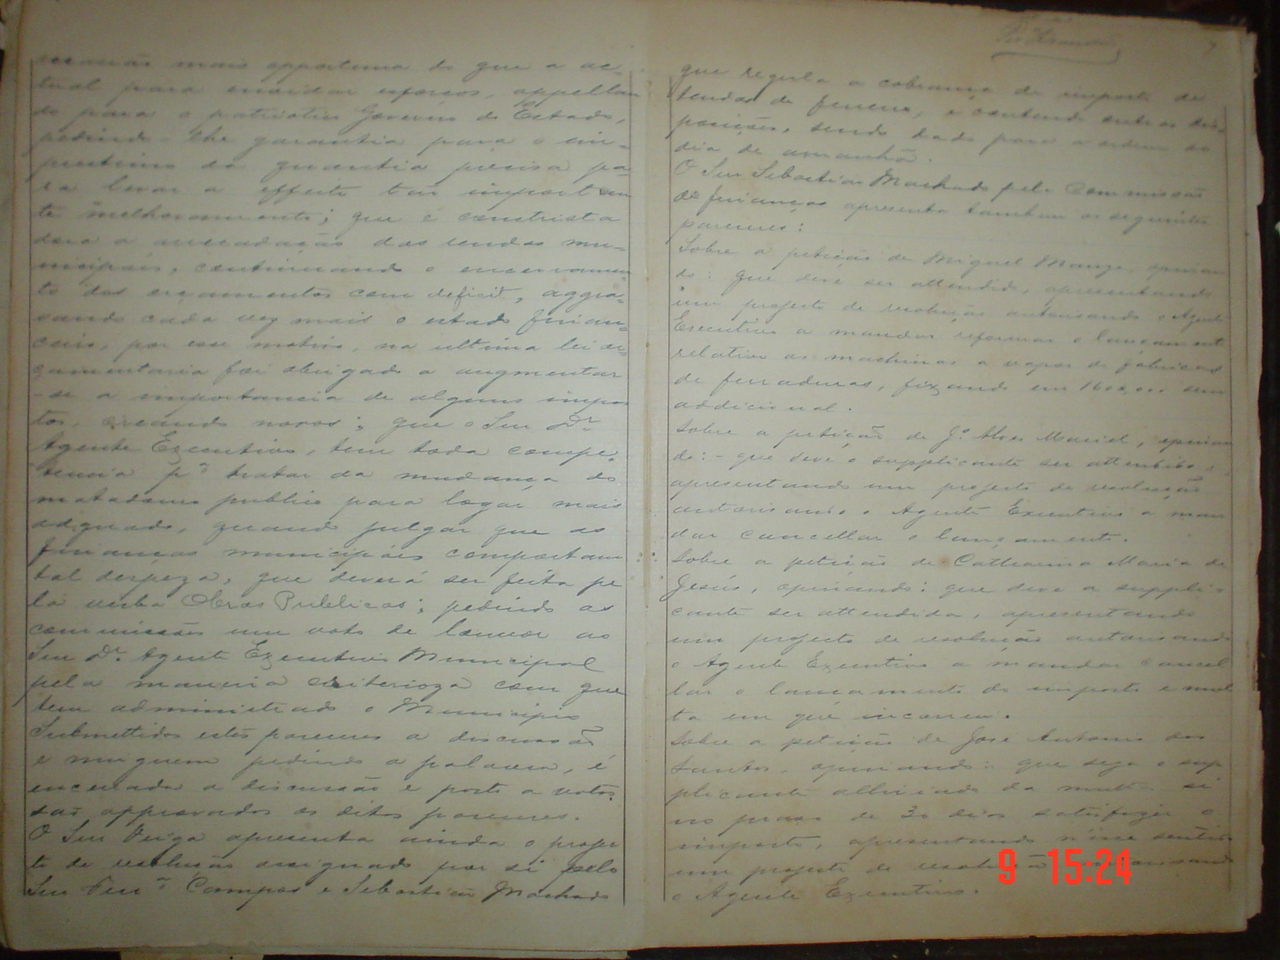 occasião mais opportuna do que a ac-
tual para envidar esforços, appellan
do para o patriotico Governo do Estado,
pedindo-lhe garantia para o em-
prestimo da quantia precisa pa-
ra levar a effeito tão importan
te melhoramento; que é
para a arrecadação das rendas mu-
nicipaes, continuando o encerramen
to dos orçamentos com deficit, aggra-
vando cada vez mais o estado finan-
ceiro, por esse motivo, na ultima lei or-
çamentaria foi obrigado a augmentar
-se a importancia de alguns impos
tos, creando novos; que o Snr Dr.
Agente Executivo, tem toda compe-
tencia pª tratar da mudança do
matadouro publico para logar mais
adequado, quando julgar que as
finanças municipaes comportam
tal despeza, que deverá ser feita pe
la verba Obras Publicas; pedindo as
commissões um voto de louvor ao
Snr Dr. Agente Executivo Municipal
pela maneira criterioza com que
tem administrado o Municipio
Submettidos estes pareceres a discussão
e ninguem pedindo a palavra, é
encerrada a discussão e posto a votos
são approvados os ditos pareceres.
O Snr Veiga apresenta ainda o proje
to de resolução assignado por si pelo
Snr Campos e Sebastião Machado
7
que regula a cobrança do imposto de
tendas de ferreiro, e contendo outras dis-
posições, sendo dado para a ordem do
dia de amanhã.
O Snr Sebastião Machado pela Commissão
de finanças apresenta tambem os seguintes
pareceres:
Sobre a petição de Miguel opinan
do: que deve ser attendido, apresentando
um projecto de resolução autorisando o Agente
Executivo a mandar reformar o lançamento
relativo as machinas a vapor de fabricas
de ferraduras, fixando em sem
addicional.
Sobre a petição de Jº Alves Maciel, opinan
do:- que deve o supplicante ser attendido,
apresentando um projecto de resolução
autorisando o Agente Executivo a man
dar cancellar o lançamento.
Sobre a petição de Catharina Maria de
Jesús, opinando: que deve a suppli
cante ser attendida, apresentando
um projecto de resolução autorisando
o Agente Executivo a mandar cancel
lar o lançamento do imposto e mul
ta em que incorreu.
Sobre a petição de José Antonio dos
Santos, opinando: que seja o sup
plicante alliviado da multa si
no praso de 30 dias satisfizer o
imposto, apresentando n'esse sentido
um projecto de resolução autorisando
o Agente Executivo.
9 15:24